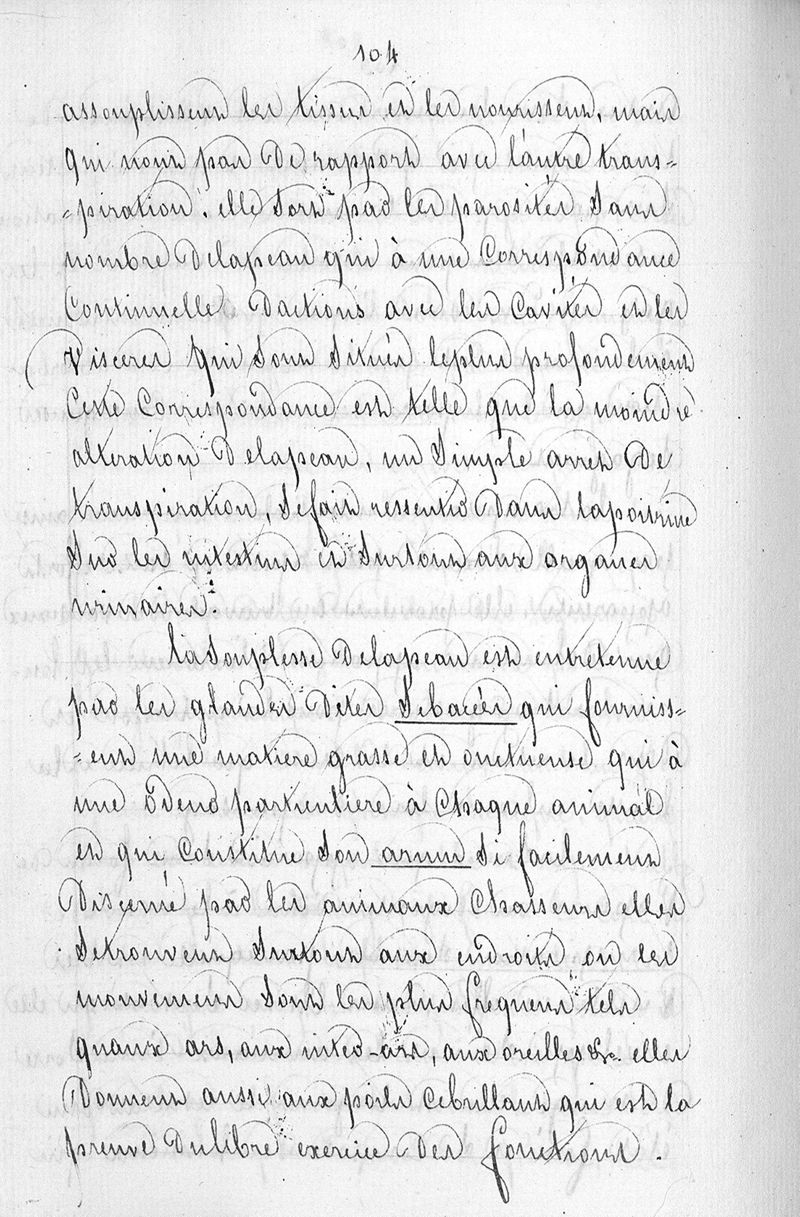 104
assouplissent les tissus et les nourissent, mais
qui nont pas de rapport avec l'autre trans=
=piration. elle sort par les parosités sans
nombre delapeau qui à une correspondance
continuelle dactions avec les cavités et les
visceres qui sont situés leplus profondement
cette correspondance est telle que la moindre
alteration delapeau, un simple arret de
transpiration, sefait ressentir dans lapoitrine
sur les intestins et surtout aux organes
urinaires.
la souplesse delapeau est entretenue
par les glandes dites sebacées qui fourniss=
=ent une matiere grasse et onctueuse qui à
une odeur particuliere à chaque animal
et qui constitue son arum si facilement
discerné par les animaux chasseurs elles
setrouvent surtout aux endroits ou les
mouvements sont les plus frequens tels
quaux ars, aux inter-ars, aux oreilles &c. elles
donnent aussi aux poils cebrillant qui est la
preuve dulibre exercice des fonctions.